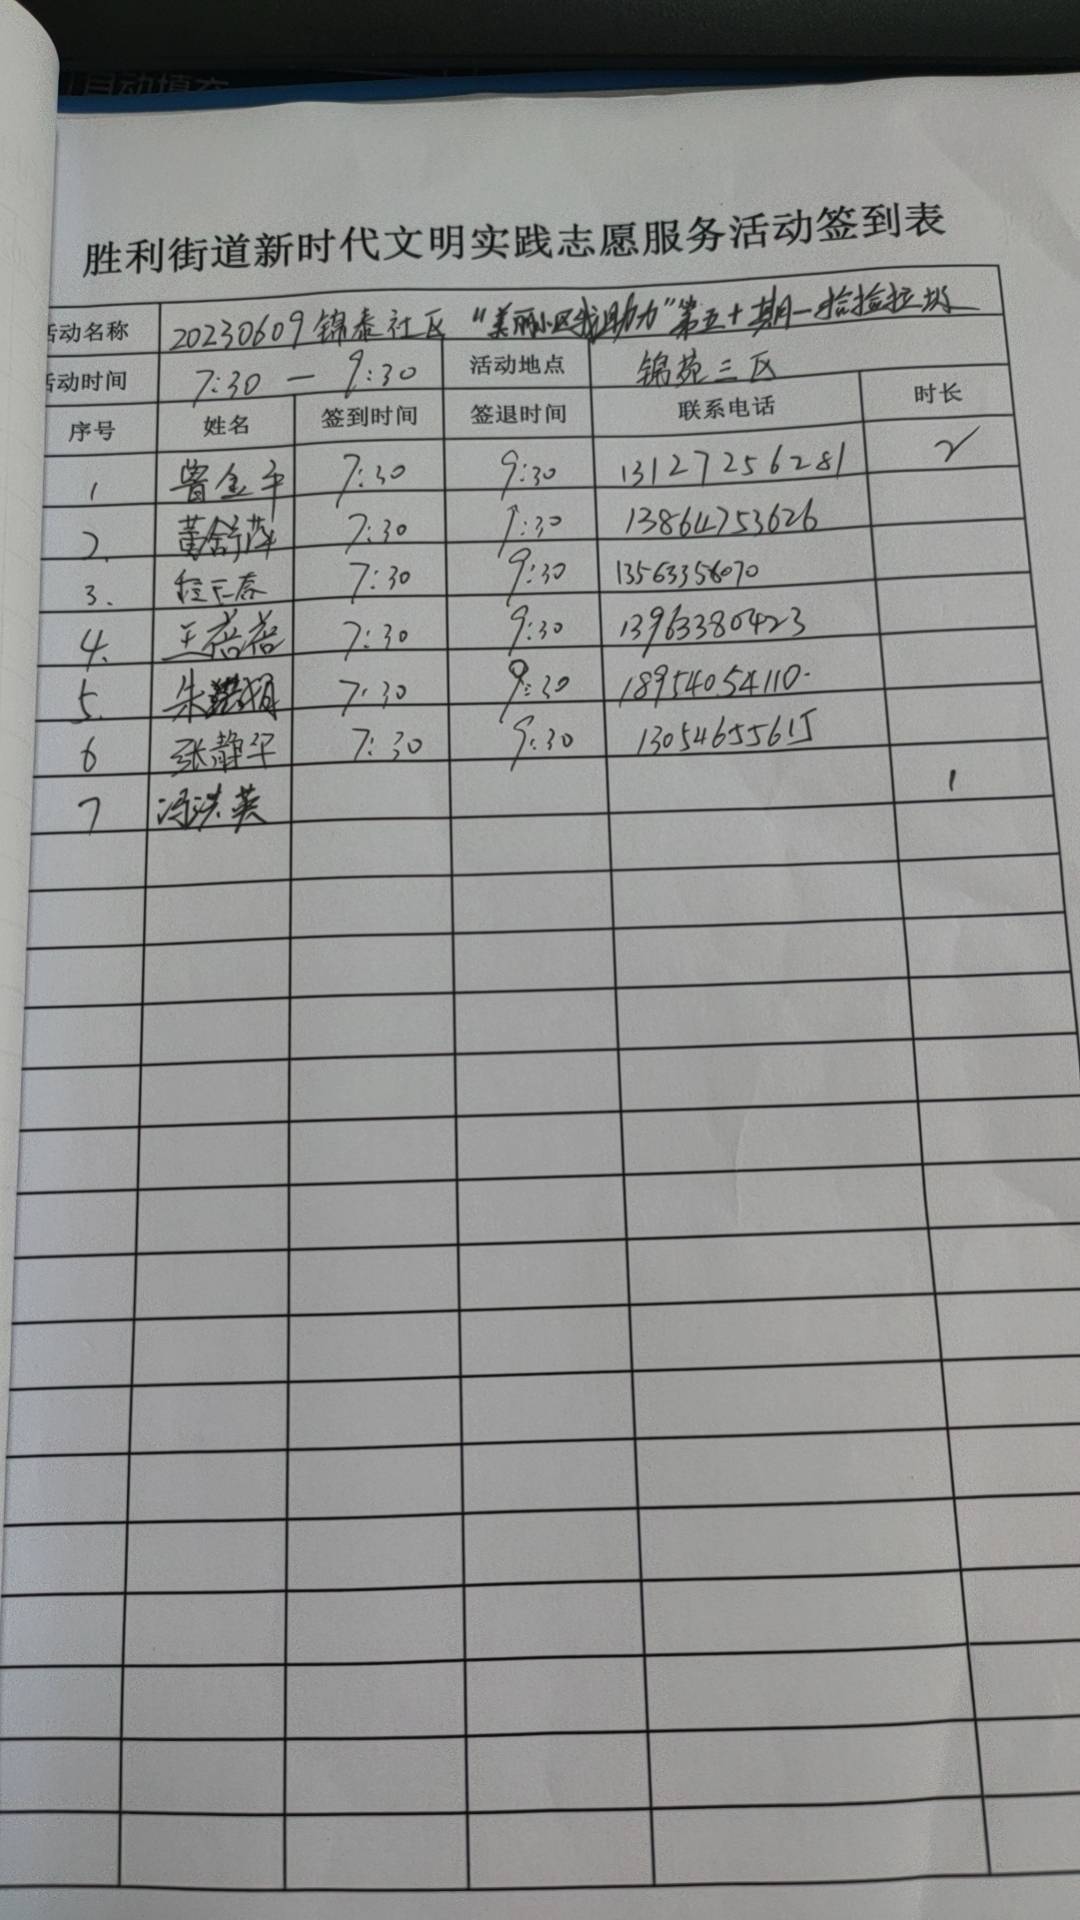 自动填充
胜利街道新时代文明实践志愿服务活动签到表
活动名称 20230609锦泰社区“美丽小区我助力”第五十期—捡拉圾
活动时间 7:30 — 9:30 活动地点 锦苑三区
序号 姓名 签到时间 签退时间 联系电话 时长
1 曾金平 7:30 9:30 13127256281 2
2. 黄舒萍 7:30 9:30 13864753626
3. 7:30 9:30 13563356070
4. 王蓓蓓 7:30 9:30 13963380423
5. 朱 7:30 9:30 18954054110.
6 张静平 7:30 9:30 13054655615
7 冯洪英 1